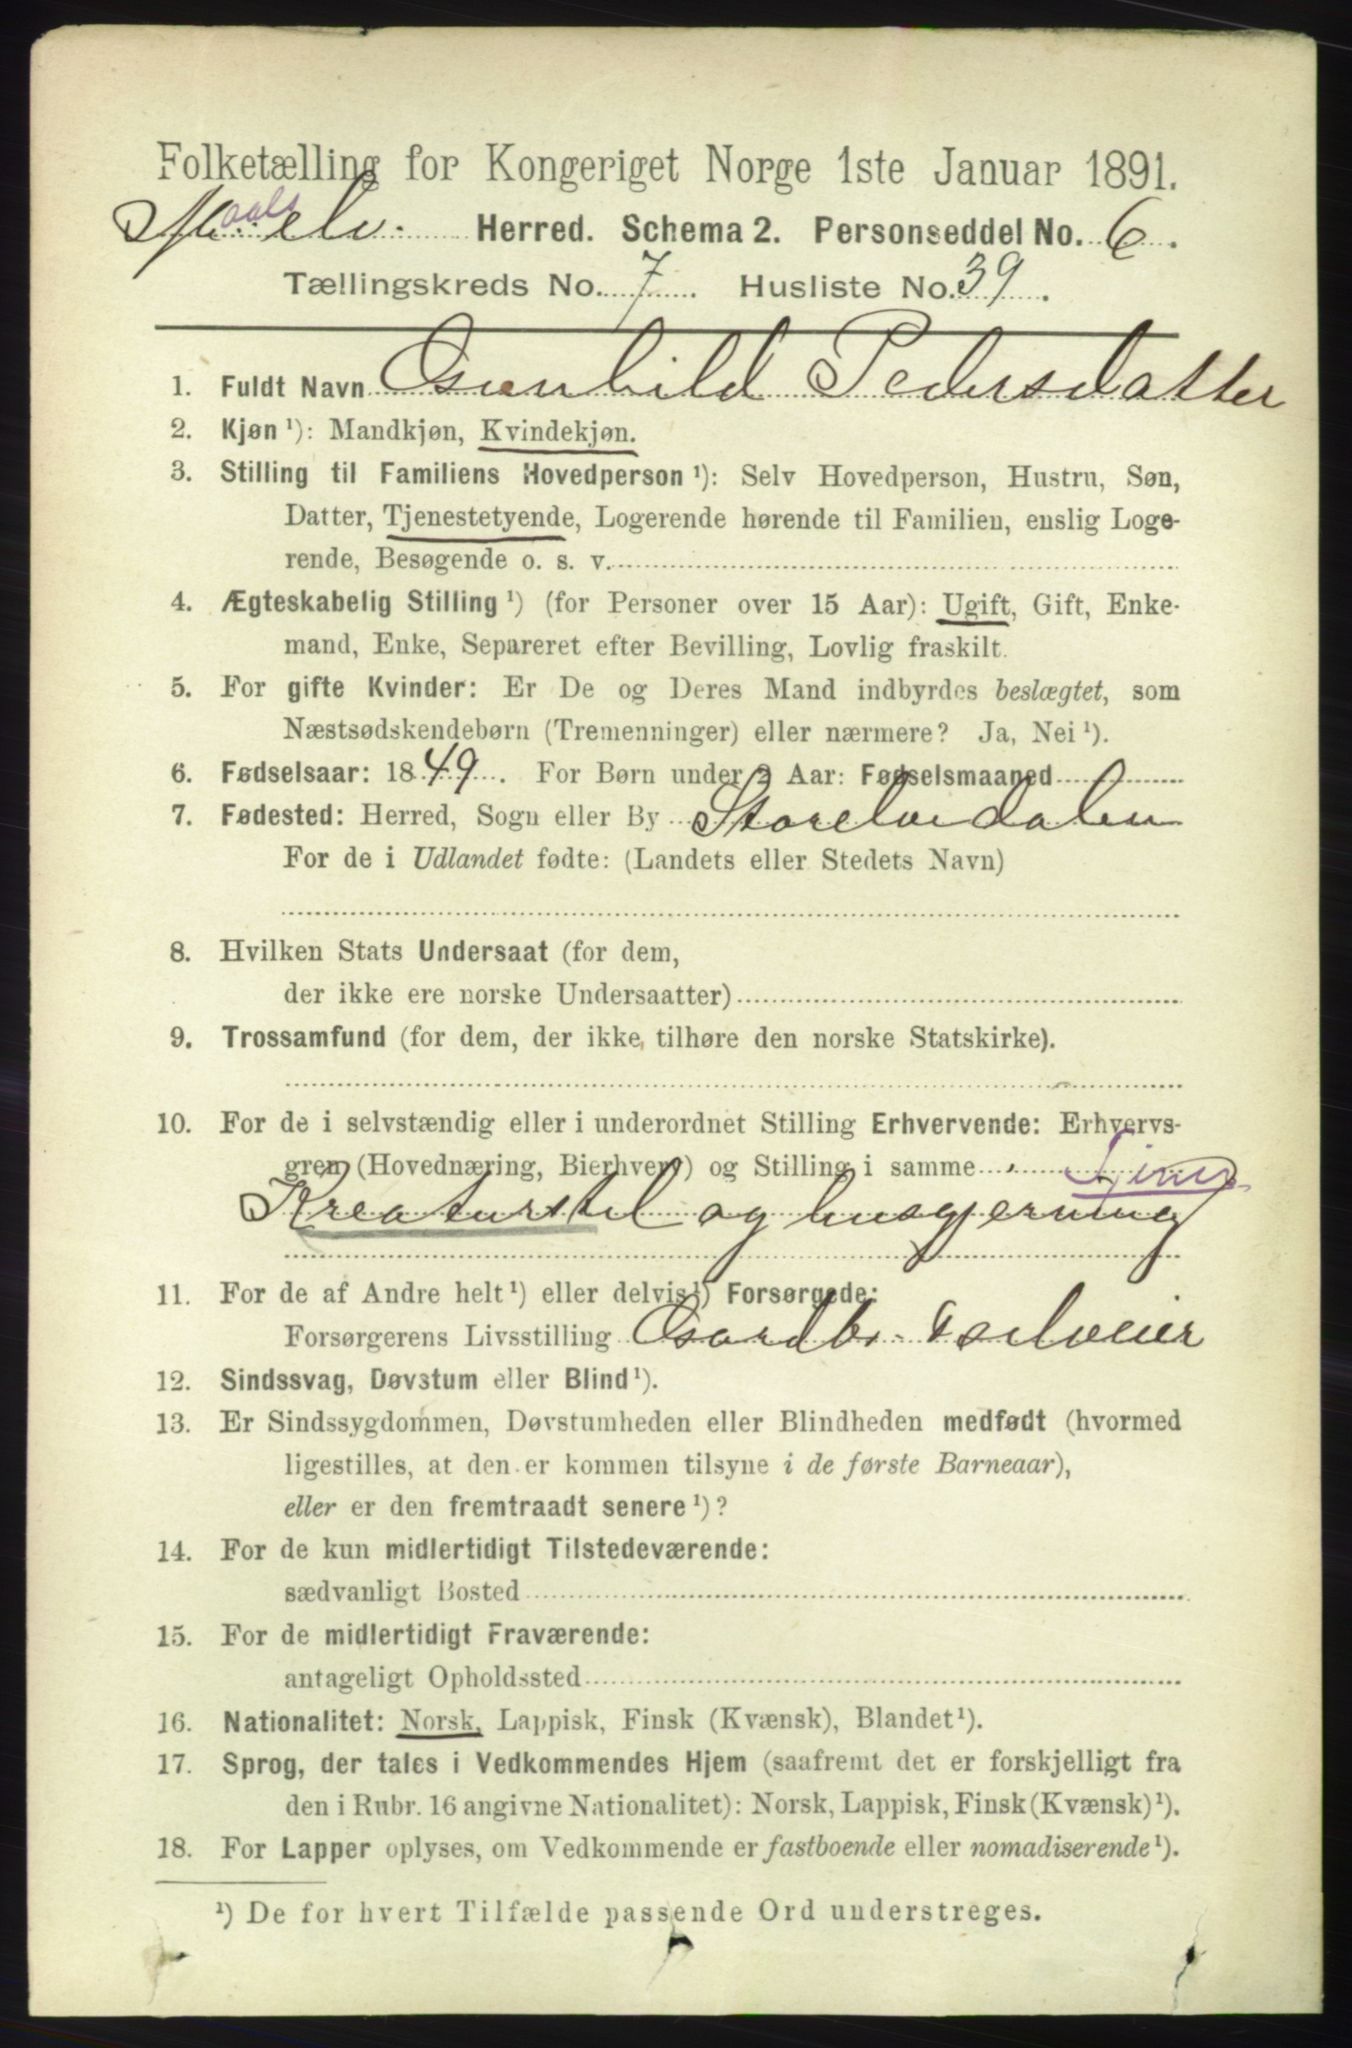 Folketælling for Kongeriget Norge 1ste Januar 1891.
Maalselv. Herred. Schema 2. Personseddel No. 6.
Tællingskreds No. 7. Husliste No. 39.
1. Fuldt Navn Gunhild Pedersdatter
2. Kjøn ¹): Mandkjøn, Kvindekjøn.
3. Stilling til Familiens Hovedperson ¹): Selv Hovedperson, Hustru, Søn,
Datter, Tjenestetyende, Logerende hørende til Familien, enslig Loge-
rende, Besøgende o. s. v.
4. Ægteskabelig Stilling ¹) (for Personer over 15 Aar): Ugift, Gift, Enke-
mand, Enke, Separeret efter Bevilling, Lovlig fraskilt.
5. For gifte Kvinder: Er De og Deres Mand indbyrdes beslægtet, som
Næstsødskendebørn (Tremenninger) eller nærmere? Ja, Nei ¹).
6. Fødselsaar: 1849. For Børn under 2 Aar: Fødselsmaaned
7. Fødested: Herred, Sogn eller By Storelvedalen
For de i Udlandet fødte: (Landets eller Stedets Navn)
8. Hvilken Stats Undersaat (for dem,
der ikke ere norske Undersaatter)
9. Trossamfund (for dem, der ikke tilhøre den norske Statskirke).
10. For de i selvstændig eller i underordnet Stilling Erhvervende: Erhvervs-
gren (Hovednæring, Bierhverv) og Stilling i samme
Kreaturstel og husgjerning
11. For de af Andre helt ¹) eller delvis ¹) Forsørgede:
Forsørgerens Livsstilling Gardbr. Selveier
12. Sindssvag, Døvstum eller Blind ¹).
13. Er Sindssygdommen, Døvstumheden eller Blindheden medfødt (hvormed
ligestilles, at den er kommen tilsyne i de første Barneaar),
eller er den fremtraadt senere ¹)?
14. For de kun midlertidigt Tilstedeværende:
sædvanligt Bosted
15. For de midlertidigt Fraværende:
antageligt Opholdssted
16. Nationalitet: Norsk, Lappisk, Finsk (Kvænsk), Blandet ¹).
17. Sprog, der tales i Vedkommendes Hjem (saafremt det er forskjelligt fra
den i Rubr. 16 angivne Nationalitet): Norsk, Lappisk, Finsk (Kvænsk) ¹).
18. For Lapper oplyses, om Vedkommende er fastboende eller nomadiserende ¹).
¹) De for hvert Tilfælde passende Ord understreges.